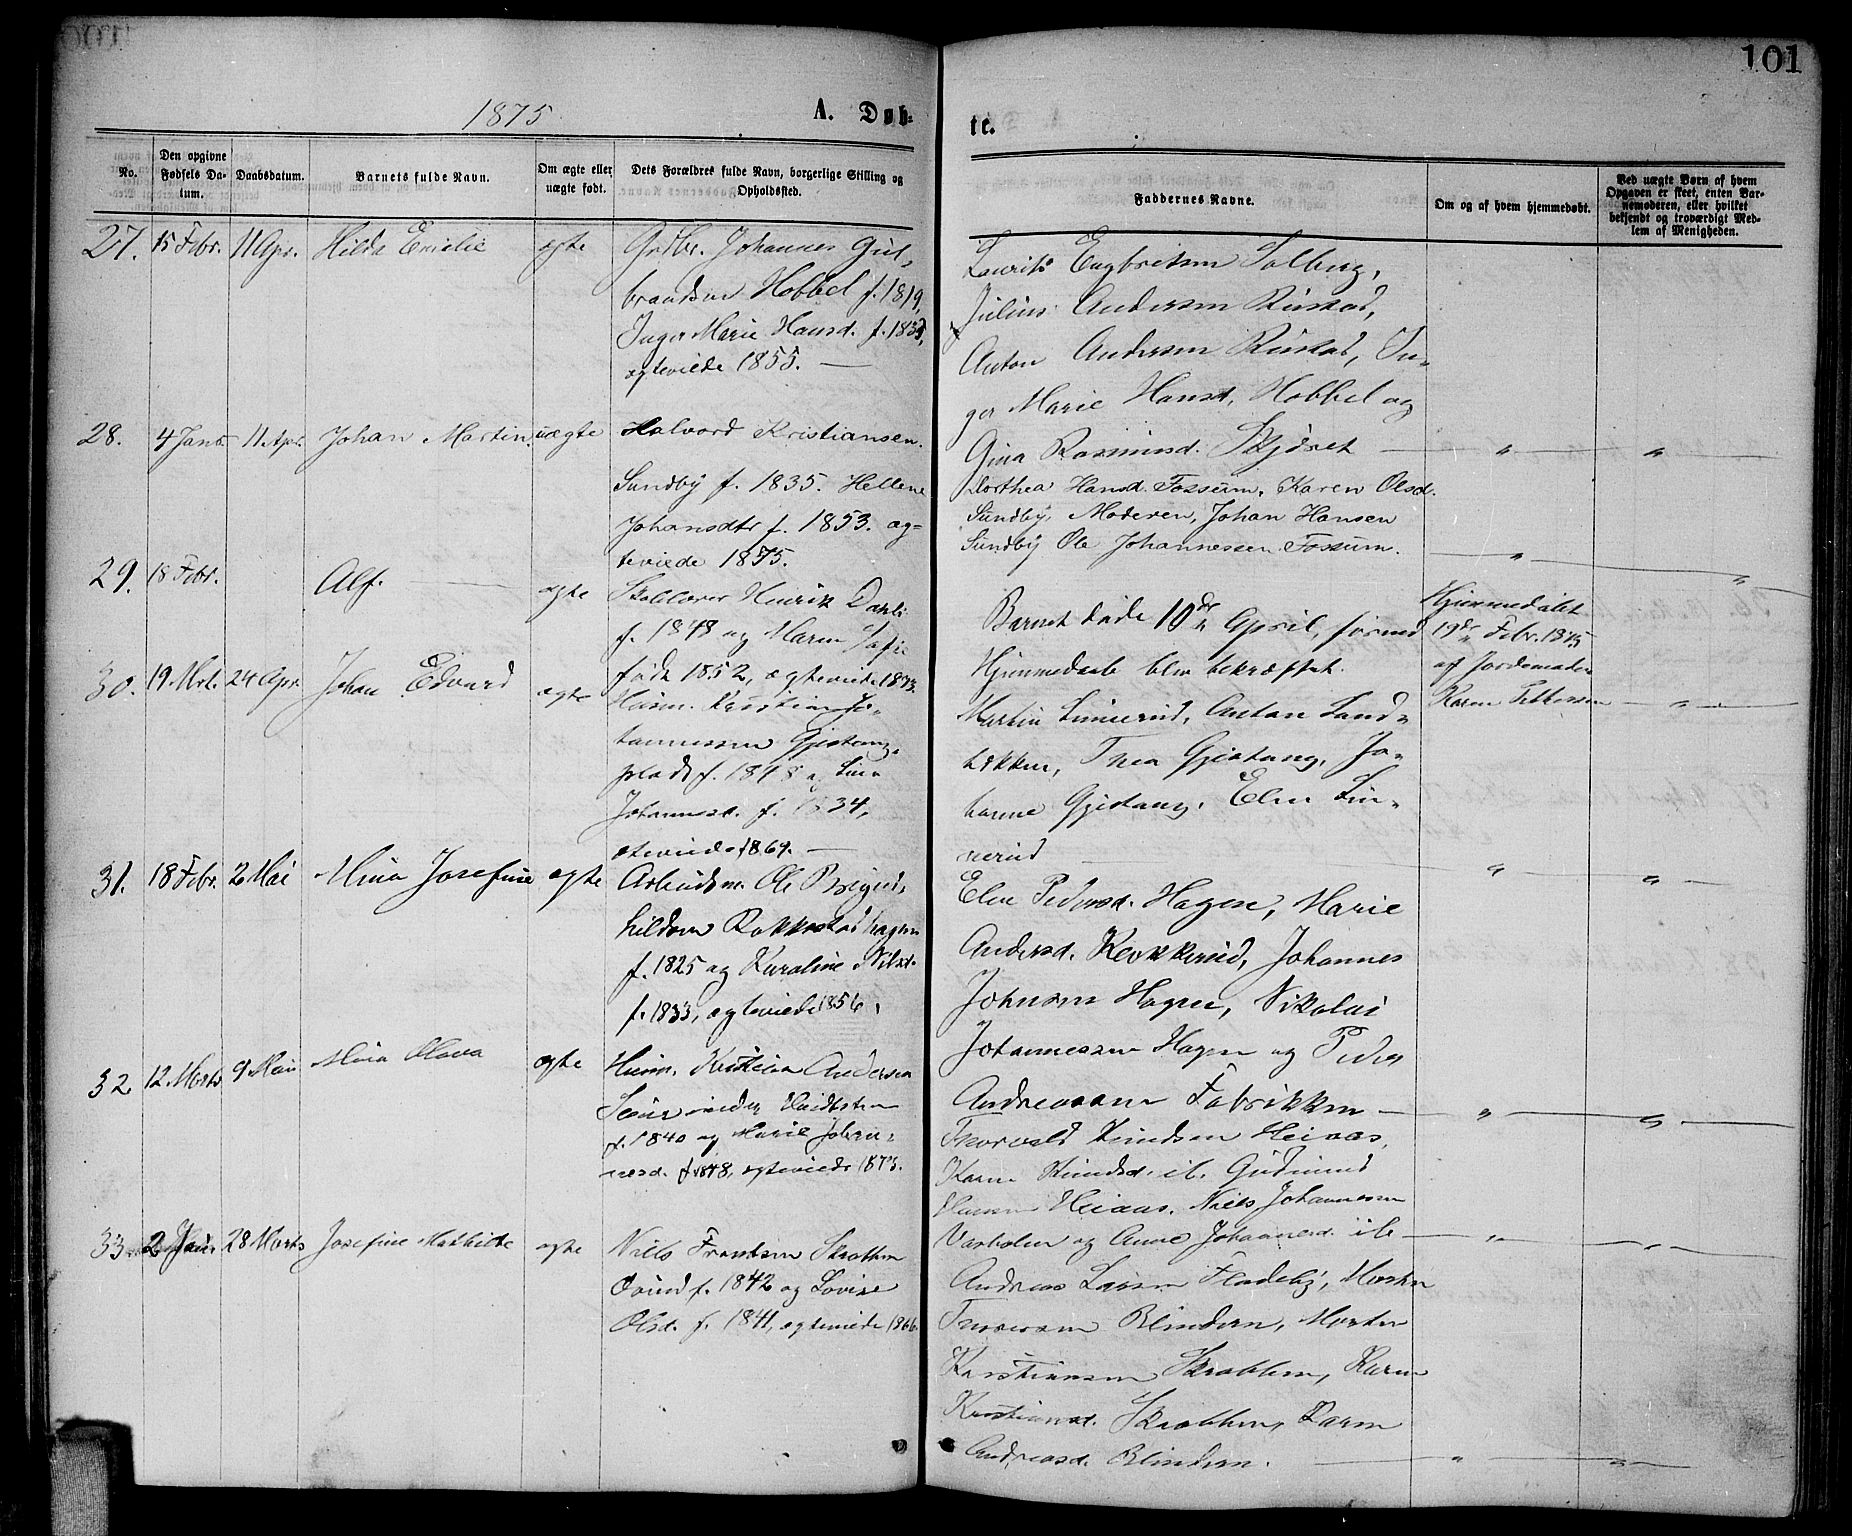 101
1875
A. Døb-
te.
No.
Den opgivne Fødsels Datum.
Daabsdatum.
Barnets fulde Navn.
Om ægte eller uægte født.
Dets Forældres fulde Navn, borgerlige Stilling og Opholdssted.
Faddernes Navne.
Om og af hvem hjemmedøbt.
Ved uægte Børn af hvem Opgaven er skeet, enten Barnemoderen, eller hvilket bekjendt og troværdigt Medlem af Menigheden.
27. 15 Febr. 11 Apr. Hilda Emelie ægte
Grdbr. Johannes Gul-
brandsen Hobbel f. 1819,
Inger Marie Hansd. f. 1833,
ægteviede 1855. —
Laurits Engbretsen Solberg,
Julius Andersen Rustad,
Anton Andersen Rustad, In-
ger Marie Hansd. Hobbel og
Gina Rasmusd. Skjøret — " — "
28. 4 Janr 11 Apr. Johan Martin uægte
Halvord Kristiansen
Sundby f. 1835. Hellene
Johansdtr f. 1853. æg-
teviede 1875.
Dorthea Hansd. Fossum, Karen Olsd.
Sundby, Moderen, Johan Hansen
Sundby Ole Johannessen Fossum. — " — "
29. 18 Febr. Alf. — ægte
Henrik Dahl
f. 1848 og Maren
født 1852, ægteviede 1873.
Barnet døde 10de April, førend
Hjemmedaab blev bekræftet.
Hjemmedøbt
19de Febr. 1875
af Jordemoder
Karen — " —
30. 19 Mrt. 24 Apr. Johan Edvard ægte
Husm. Kristian Jo-
hannessen Gjestang-
plads f. 1848 og
Johannesd. f. 1834,
ægteviede 1869. —
Martin Linnerud, Anton Land-
Thea Gjestang, Jo-
hanne Gjestang, Elen Lin-
nerud — " — " —
31. 18 Febr. 2 Mai Mina Josefine ægte
Arbeidsm. Ole
Rakkestadhagen
f. 1825 og Karoline Nilsd.
f. 1833, ægteviede 1856.
Elen Pedersd. Hagen, Marie
Andersd. Krokkerud, Johannes
Johnsen Hagen, Nikolai
Johannessen Hagen og Peder
Andreassen Fabrikken — " — " —
32. 12 Marts 9 Mai Mina Olava ægte
Husm. Kristian Andersen
f. 1840 og Marie Johan-
nesd. f. 1848, ægteviede 1873.
Thorvald Knudsen Heiaas,
Karen Knudsd. ib. Gudmund
Hansen Heiaas, Niels Johannesen
og Anne Johannesd. ib — " — "
33. 2 Janr 28 Marts Josefine Mathilde ægte
Nils Frantsen Skrabben
f. 1842 og Lovise
Olsd. f. 1841, ægteviede 1866.
Andreas Larsen Fladeby, Morten
Thoresen Blindern, Morten
Kristiansen Skrabben, Karen
Kristiansd. Skrabben, Karen
Andreasd. Blindern. — " — " —